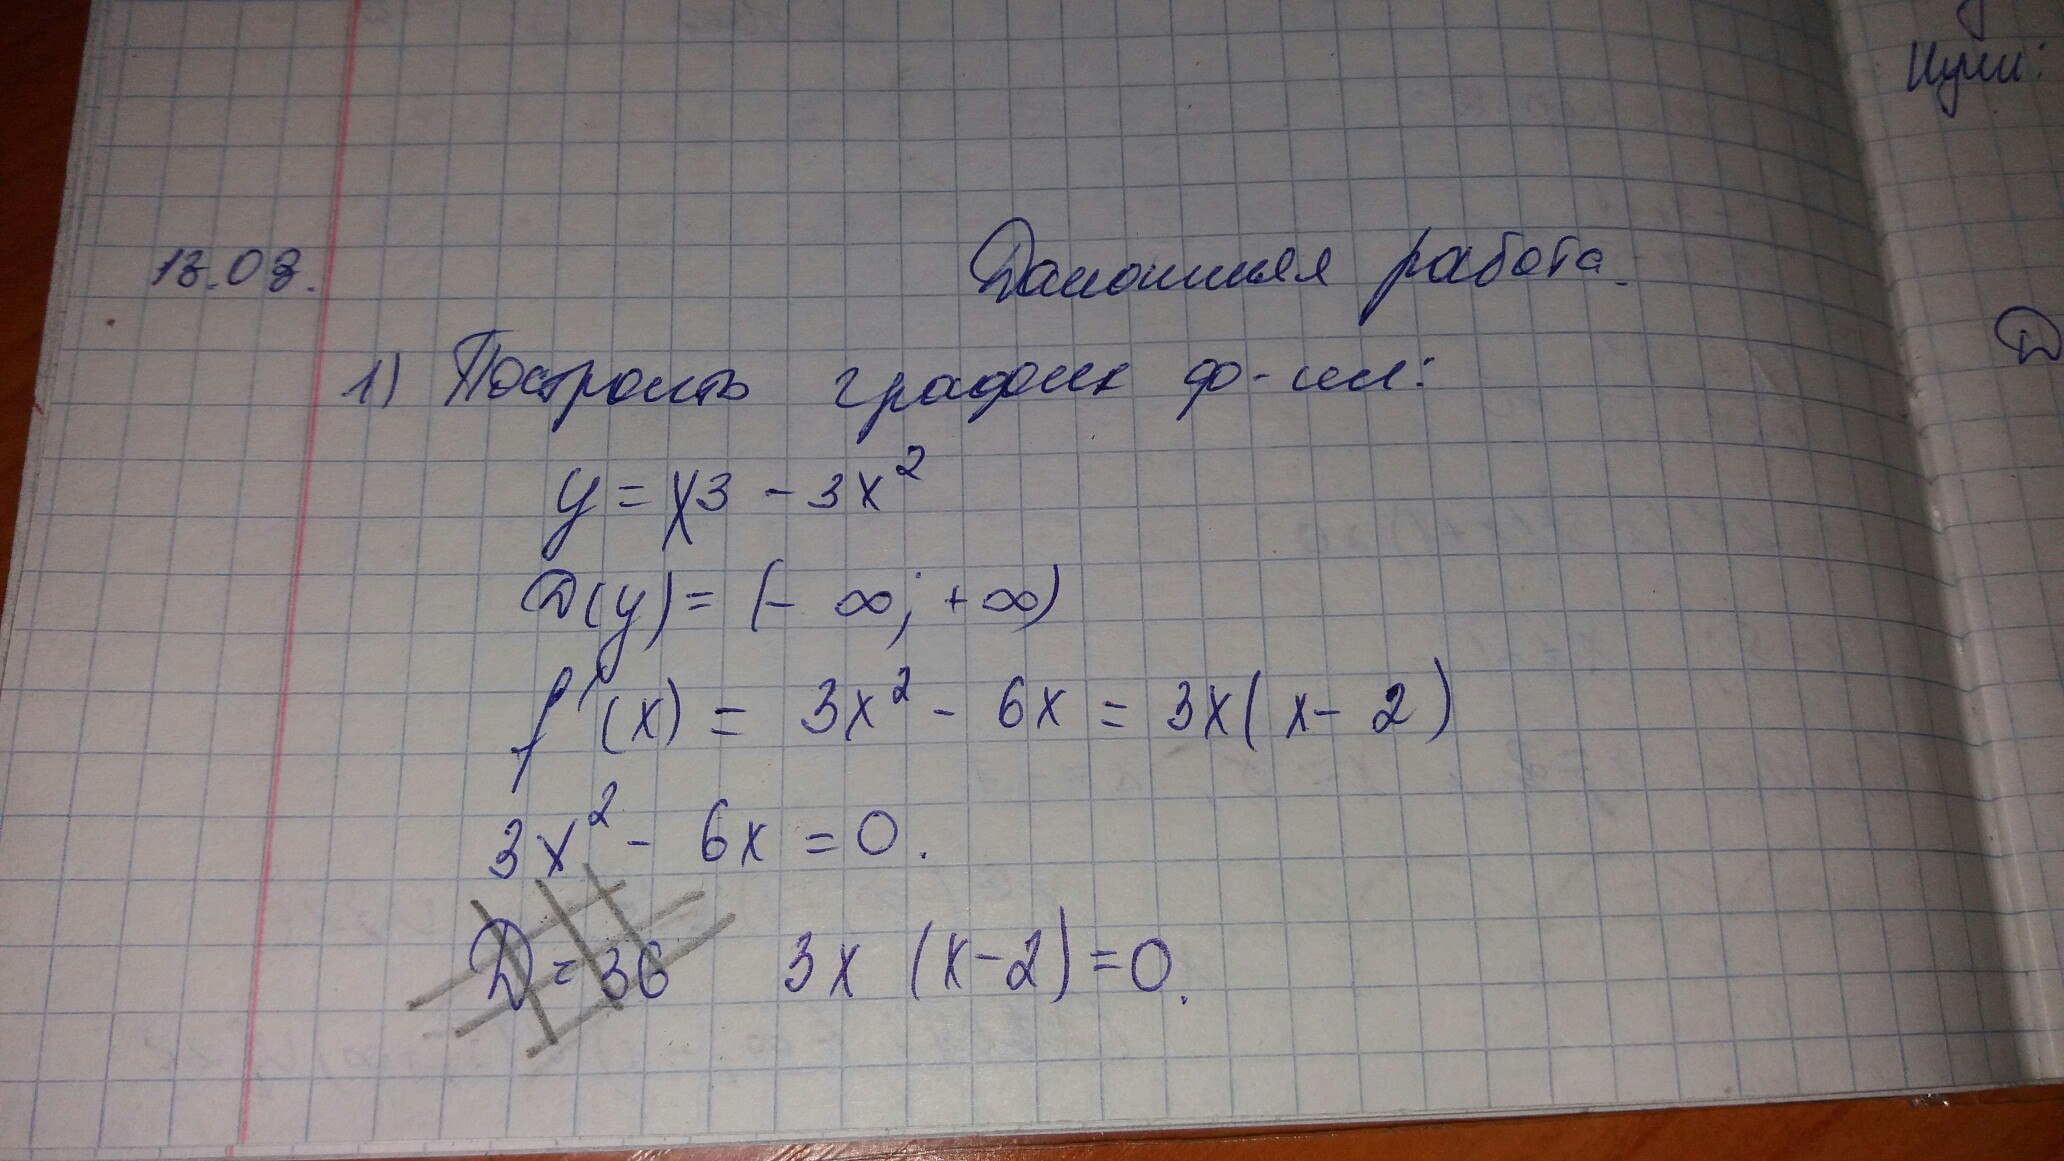 13.03.
Домашняя работа.
1) Построить график ф-ции:
y = x3 - 3x²
D(y) = (- ∞; +∞)
f'(x) = 3x² - 6x = 3x(x - 2)
3x² - 6x = 0.
D = 36 3x (x-2) = 0.
Нули:
D